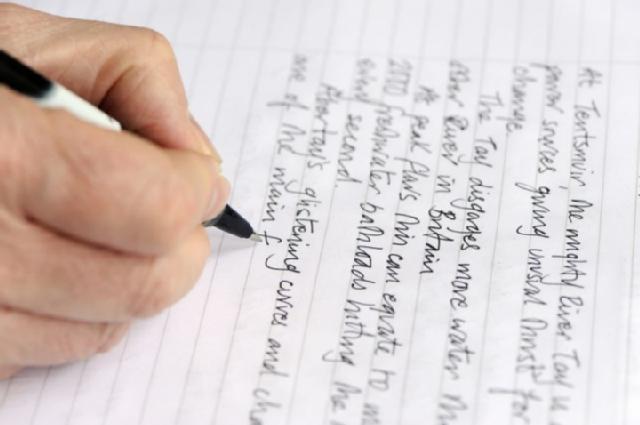 At Tentsmuir the mighty River Tay is
power scores giving unusual thrust for
change.
The Tay disgarges more water
other River in Britain
At peak flows this can equate to
2000 freshwater bathloads hitting the
every second.
glistening curves and
one of the main f